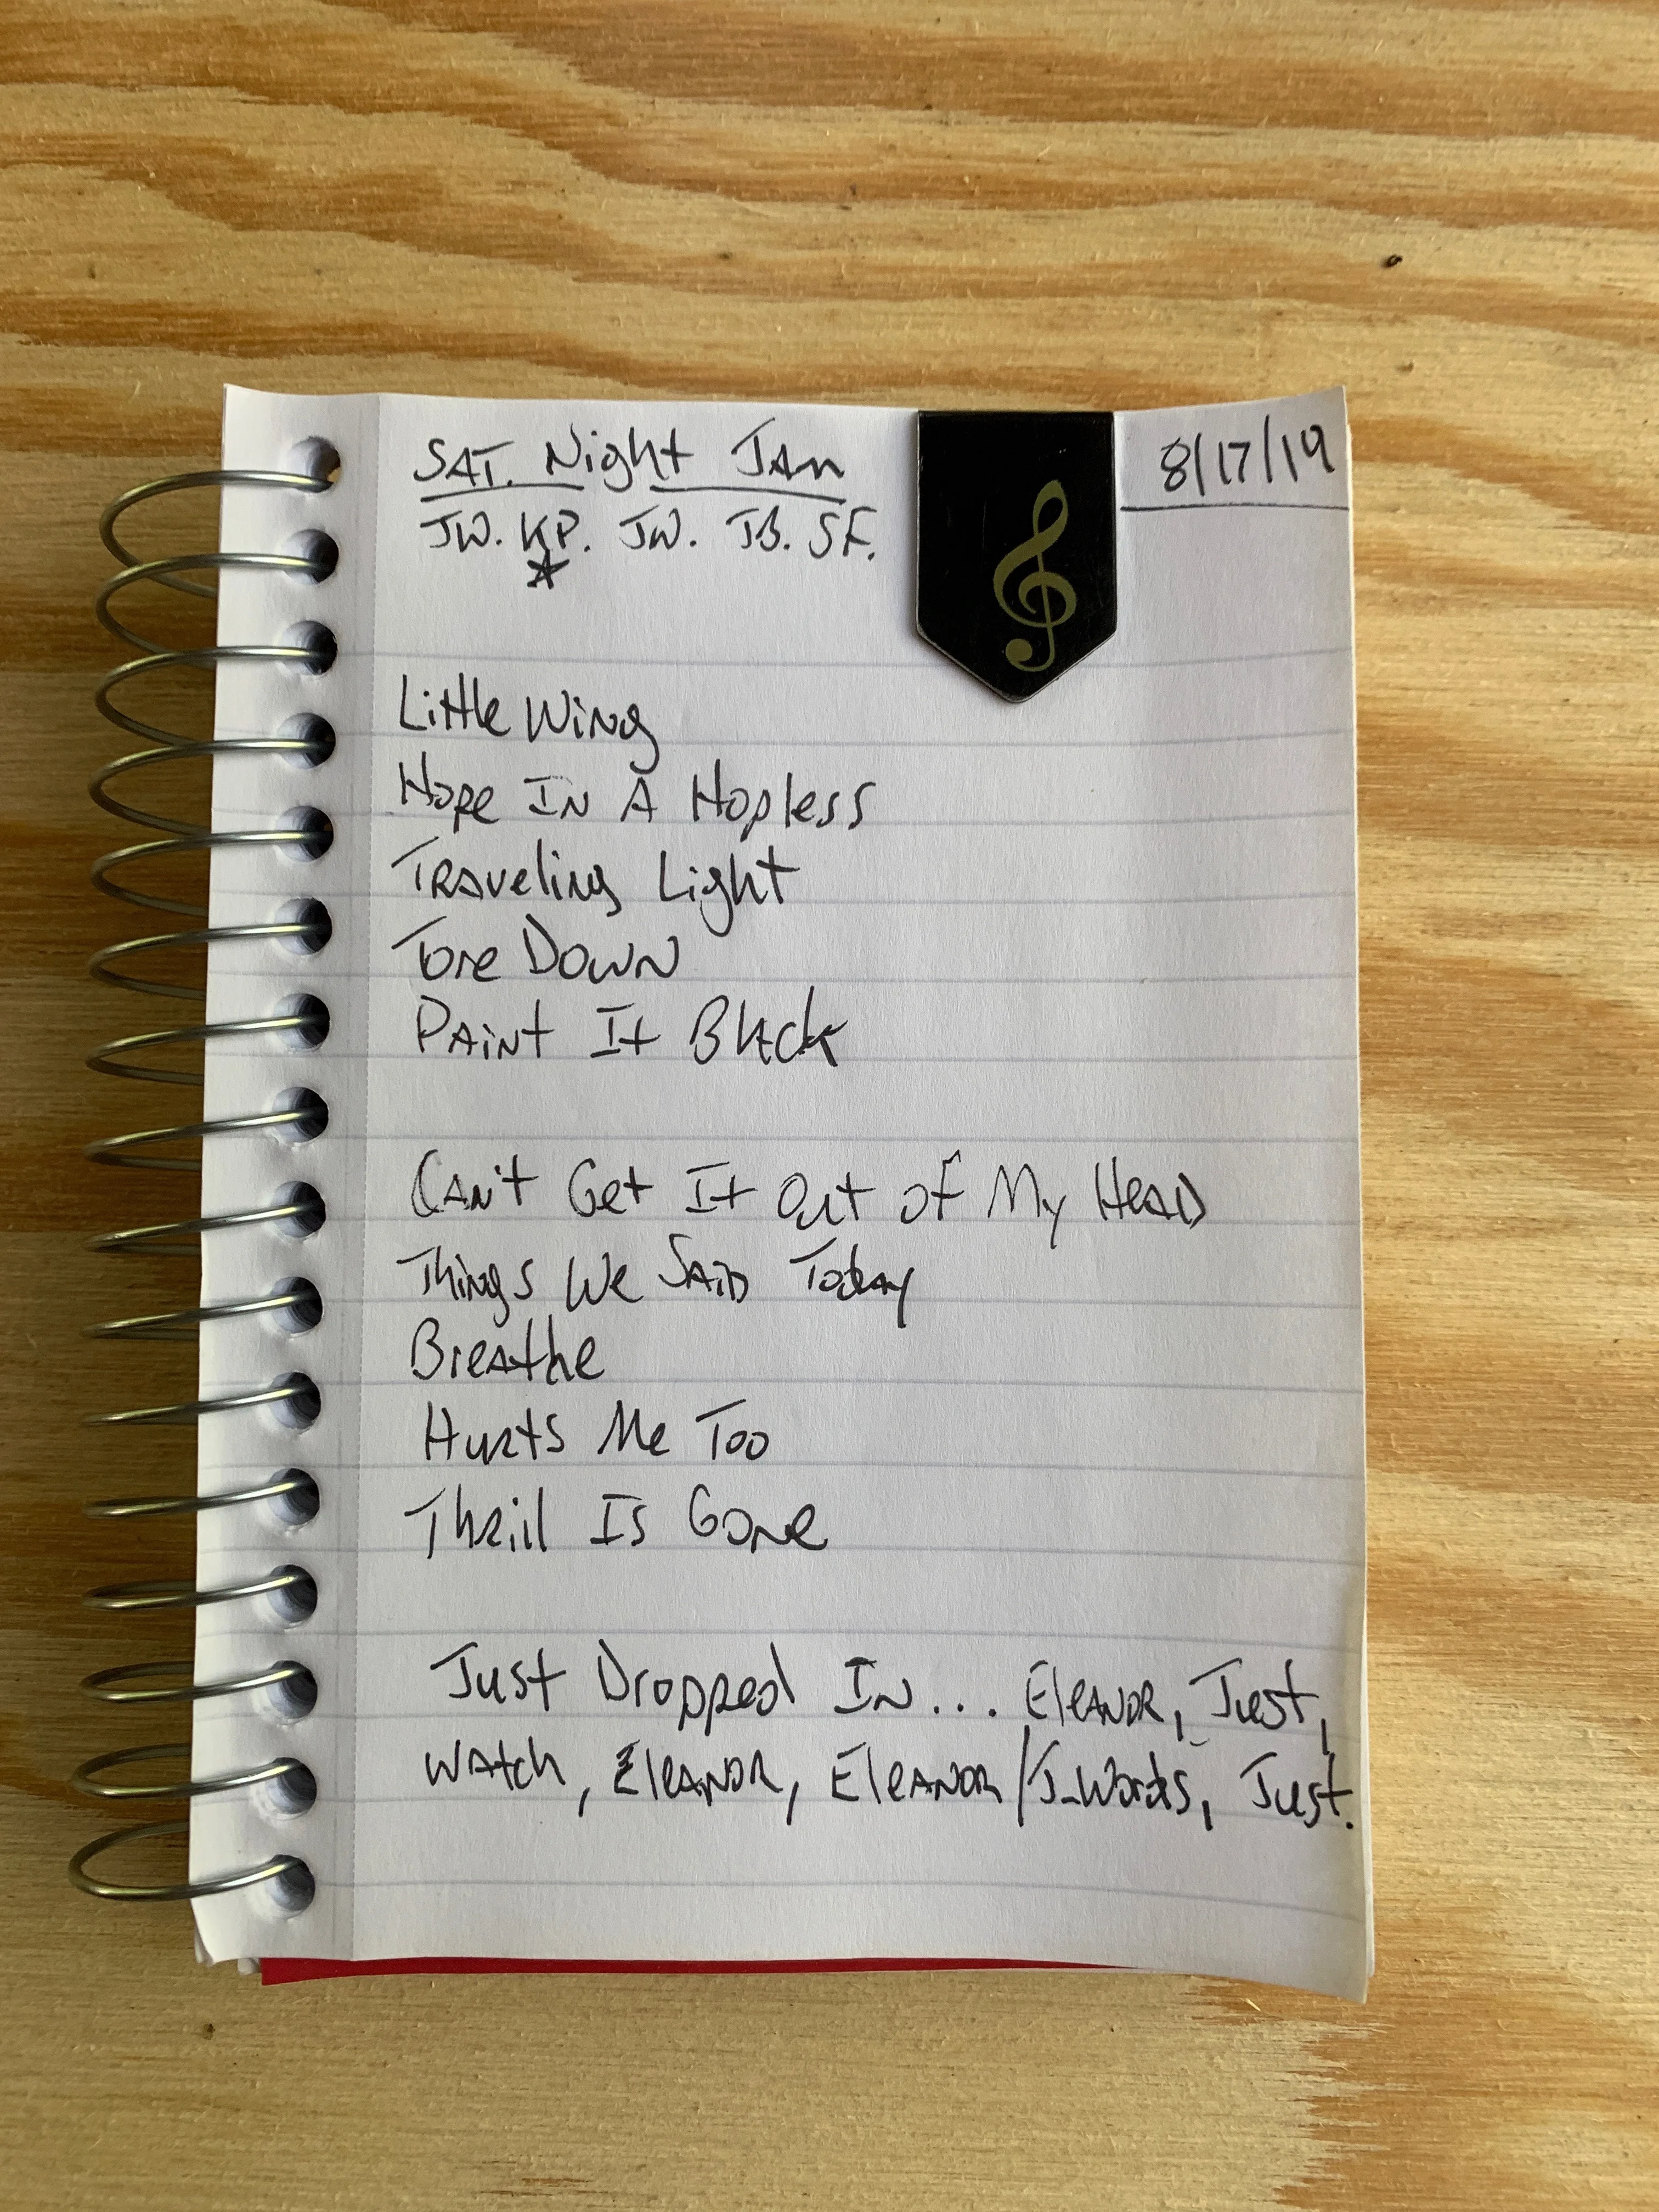 SAT. Night JAM 8/17/19
JW. KP. JW. JB. SF.
Little Wing
Hope IN A Hopless
TRAveling Light
Tore Down
PAint It Black
CAN't Get It Out of My HeAD
Things We SAiD Today
BreAthe
HuRts Me Too
ThRill Is Gone
Just Dropped IN... EleANOR, Just,
WAtch, EleANOR, EleANOR/J-Words, Just.